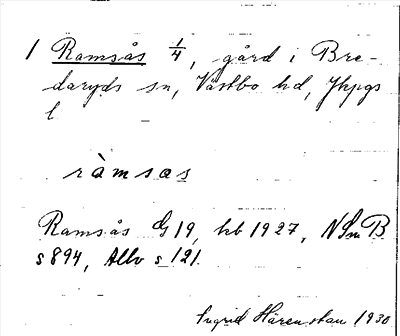 1 Ramsås 1/4, gård i Bre-
daryds sn, Västbo hd, Jkpgs
l
ràmsas
Ramsås G 19, kb 1927, NSmB
s 894, Allv s 121.
Ingrid Härenstam 1930